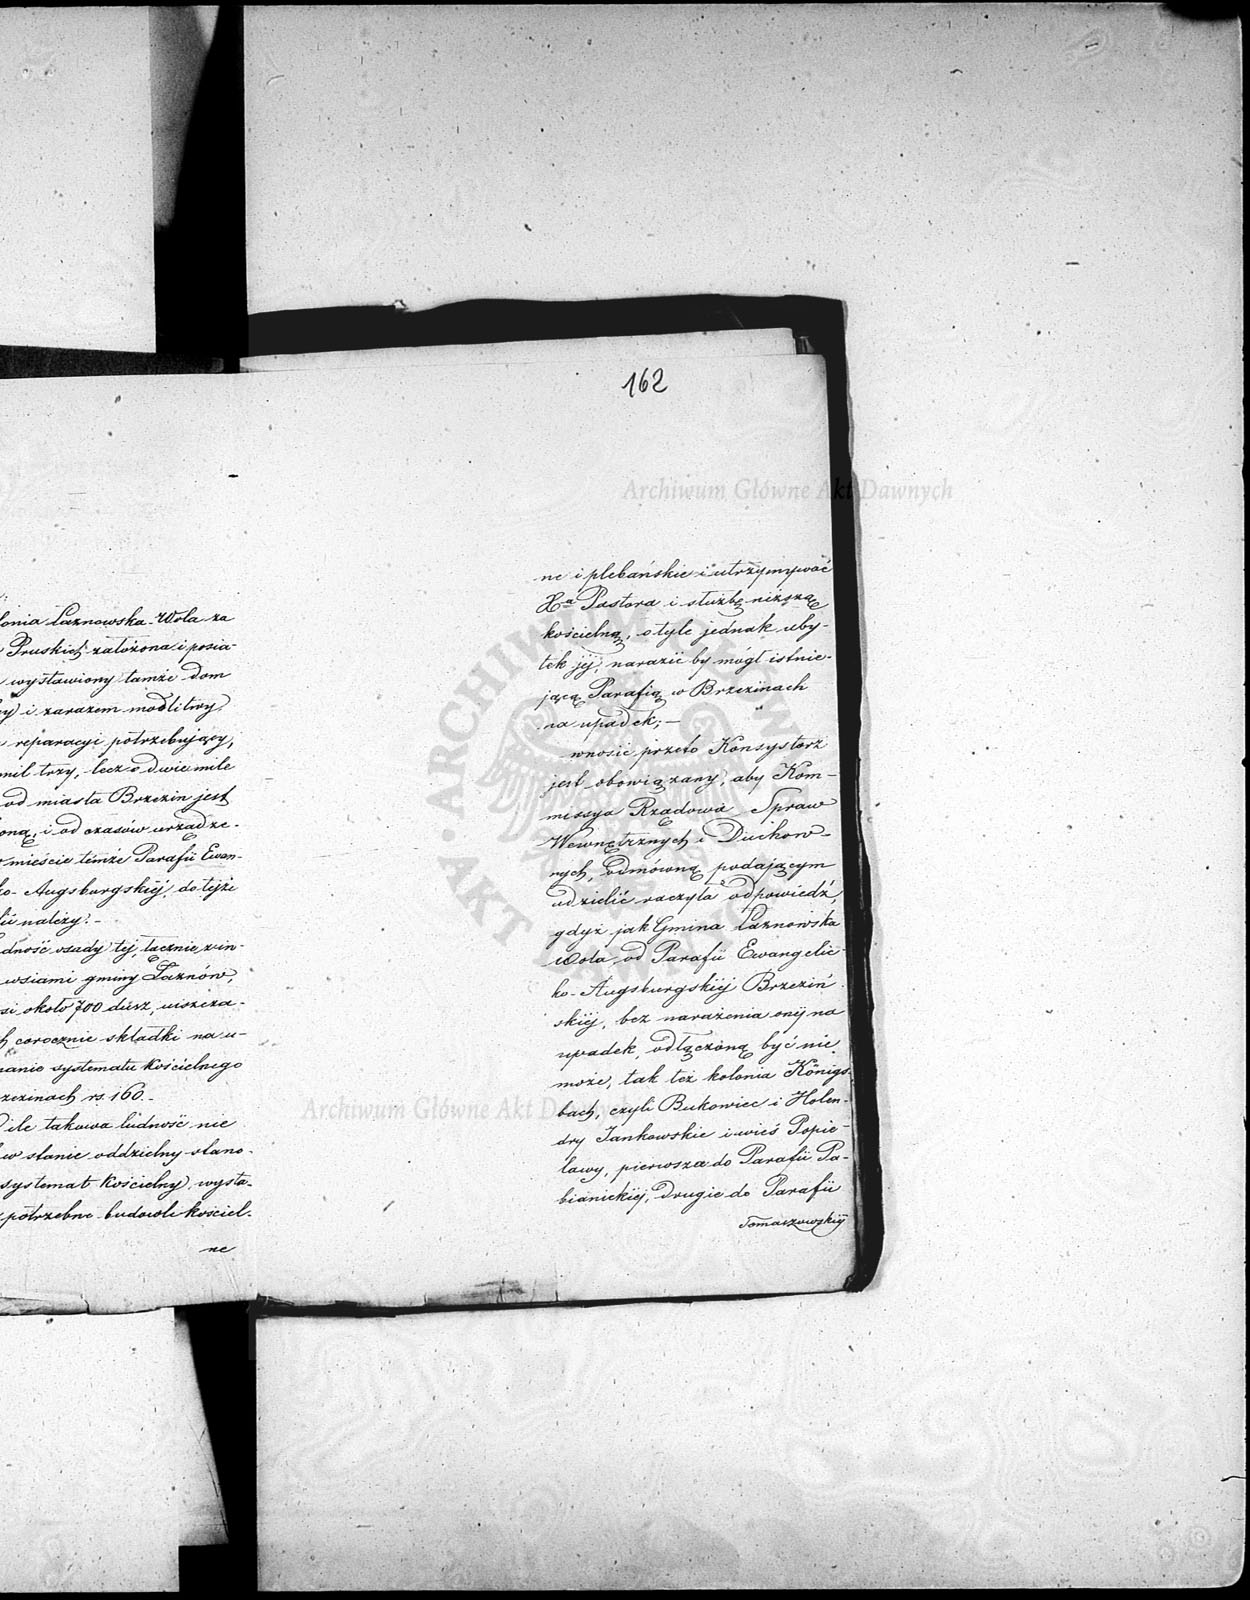 onia Łaznowska-Wola za
Pruskich założona i posia-
wystawiony tamże dom
y i zarazem modlitwy
reparacyi potrzebujący,
mil trzy, lecz o dwie mile
od miasta Brzezin jest
oną, i od czasów urządze-
mieście temże Parafii Ewan-
ko-Augsburgskiéj, do téjże
ii należy.-
dność osady téj, łącznie z in-
wsiami gminy Łaznów,
si około 700 dusz, uiszcza-
h corocznie składki na u-
manie systematu kościelnego
rzezinach rs. 160.-
ile takowa ludność nie
w stanie oddzielny stano-
systemat kościelny, wysta-
potrzebne budowli kościel-
ne
162
ne i plebańskie i utrzymywać
Xa Pastora i służbę niższą
kościelną, o tyle jednak uby-
tek jéj, narazić by mógł istnie-
jącą Parafią w Brzezinach
na upadek;-
wnosić przeto Konsystorz
jest obowiązany, aby Kom-
missya Rządowa Spraw
Wewnętrznych i Duchow-
nych, odmówną podającym
udzielić raczyła odpowiedź,
gdyż jak Gmina Łaznowska
Wola, od Parafii Ewangelic-
ko-Augsburgskiéj Brzeziń-
skiéj, bez narażenia onéj na
upadek, odłączoną być nie
może, tak też kolonia Königs-
bach, czyli Bukowiec i Holen-
dry Jankowskie i wieś Popie-
lawy, pierwsza do Parafii Pa-
bianickiéj, drugie do Parafii
Tomaszowskiéj
Archiwum Główne Akt Dawnych
Archiwum Główne Akt Dawnych